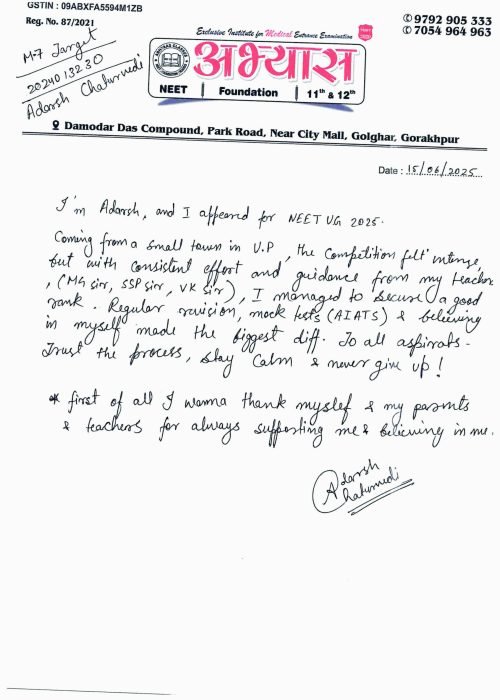 GSTIN : 09ABXFA5594M1ZB
Reg. No. 87/2021
✆ 9792 905 333
✆ 7054 964 963
M-7 Target
2024013230
Adarsh Chaturvedi
Exclusive Institute for Medical Entrance Examination
अभ्यास
NEET | Foundation | 11th & 12th
Damodar Das Compound, Park Road, Near City Mall, Golghar, Gorakhpur
Date : 15/06/2025
I'm Adarsh, and I appeared for NEET UG 2025.
Coming from a small town in U.P, the Competition felt intense,
but with consistent effort and guidance from my teachers
, (MG sir, SSP sir, VK sir), I managed to secure a good
rank. Regular revision, mock tests (AIATS) & believing
in myself made the biggest diff. To all aspirants-
Trust the process, stay Calm & never give up!
* first of all I wanna thank myslef & my parents
& teachers for always supporting me & believing in me.
Adarsh
Chaturvedi